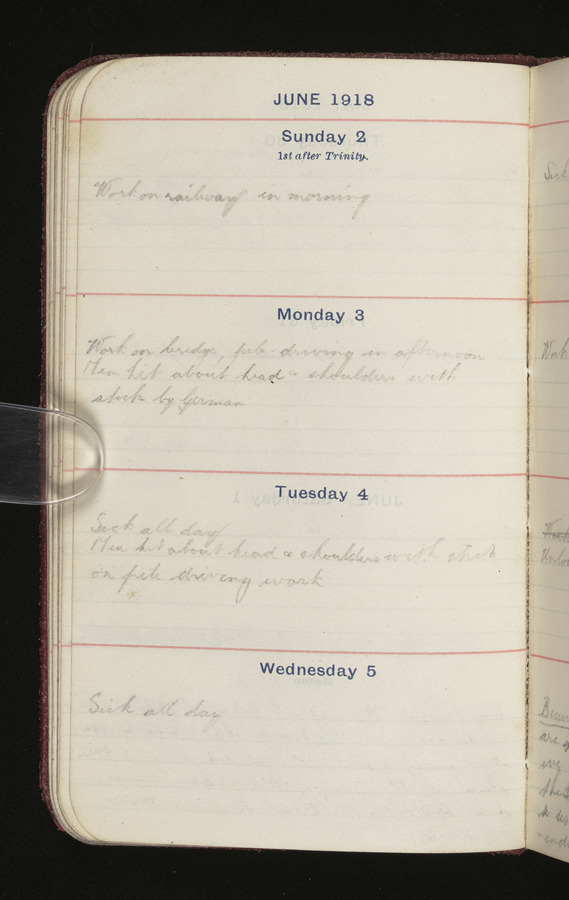 JUNE 1918
Sunday 2
1st after Trinity.
Work on railway in morning
Monday 3
Work on bridge, pile-driving in afternoon
Men hit about head & shoulders with
stick by German
Tuesday 4
Sick all day
Men hit about head & shoulders with stick
on pile driving work
Wednesday 5
Sick all day
Sick
Work
are